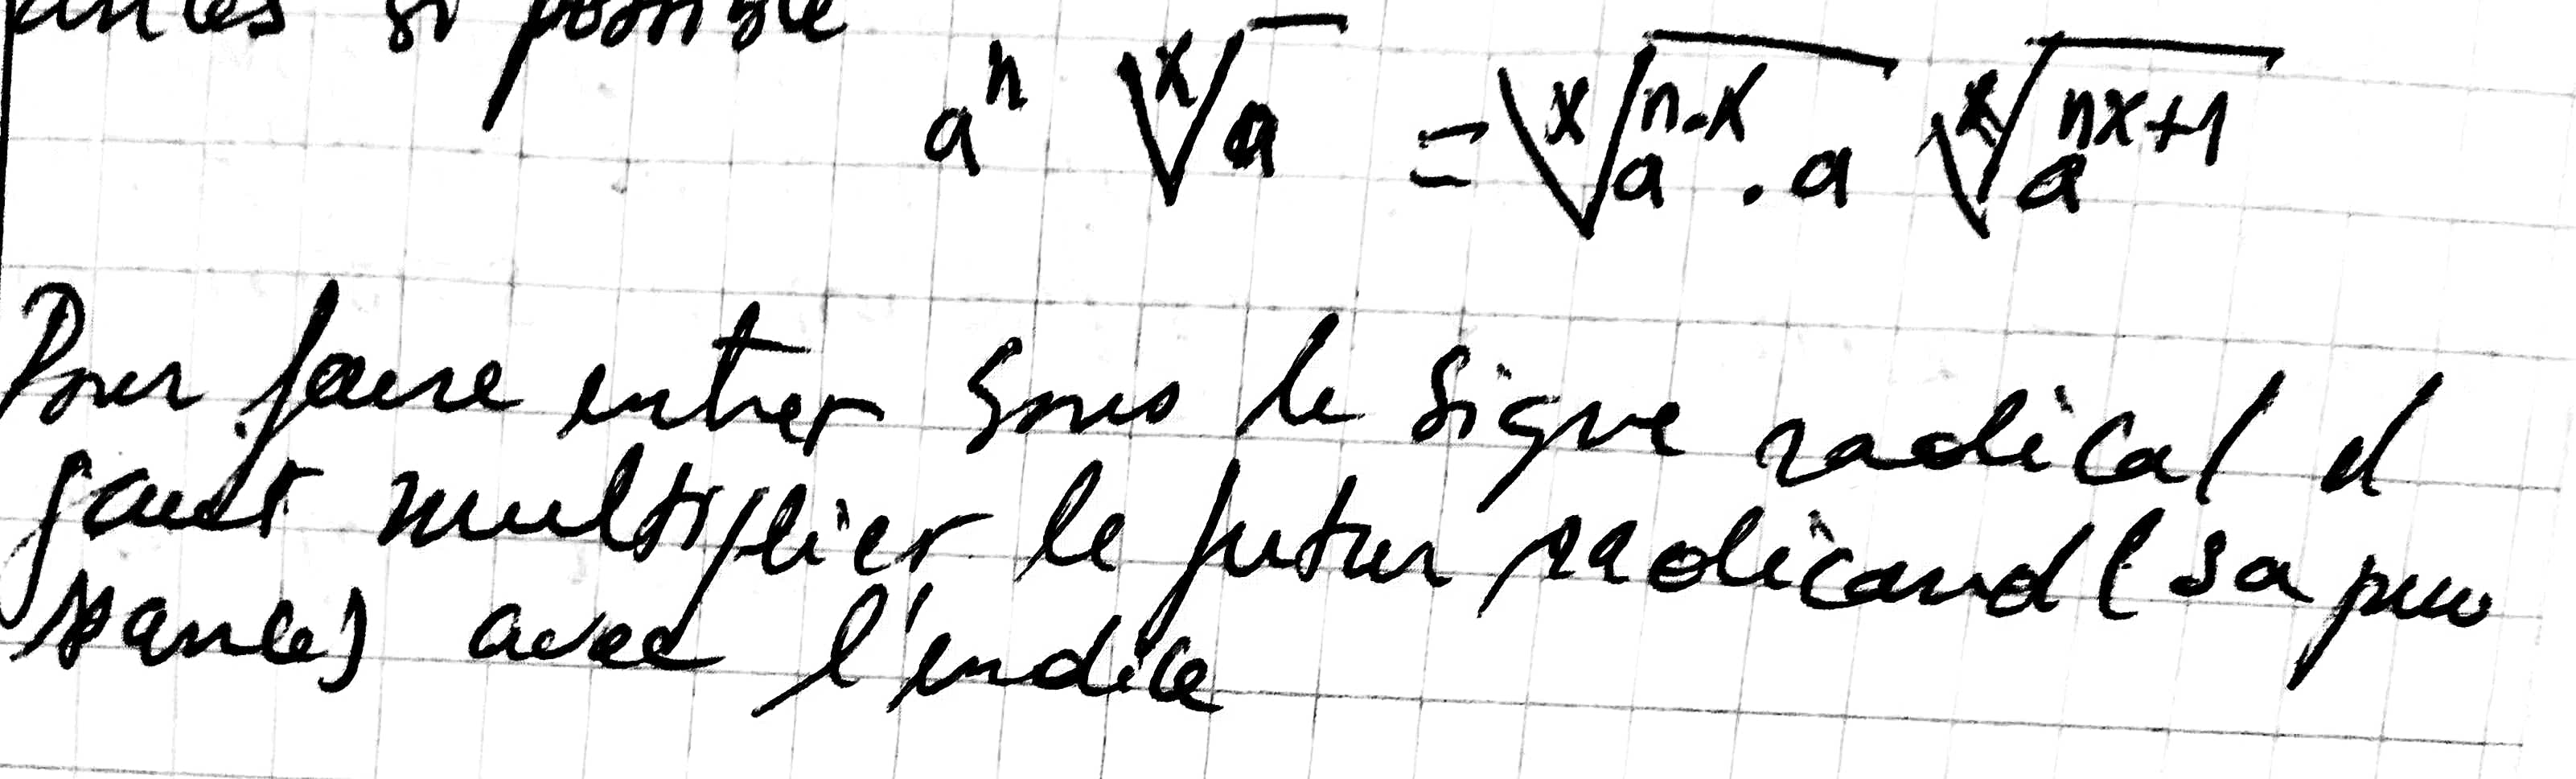 si possible
aⁿ ˣ√a = ˣ√(aⁿ·ˣ · a) ˣ√(aⁿˣ⁺¹)
Pour faire entrer sous le signe radical il
faut multiplier le futur radicand (sa puis
sance) avec l'indice